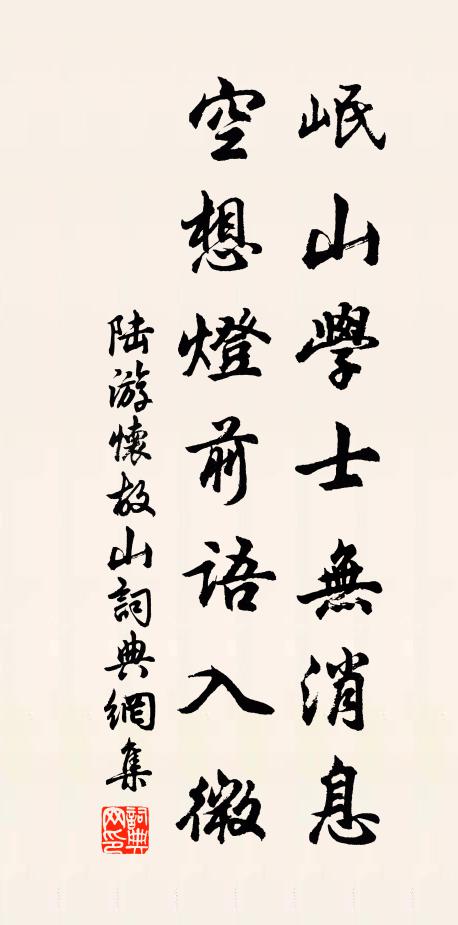 岷山學士無消息
空想燈前語入微
陆游懷故山詞典網集
詞典
网印